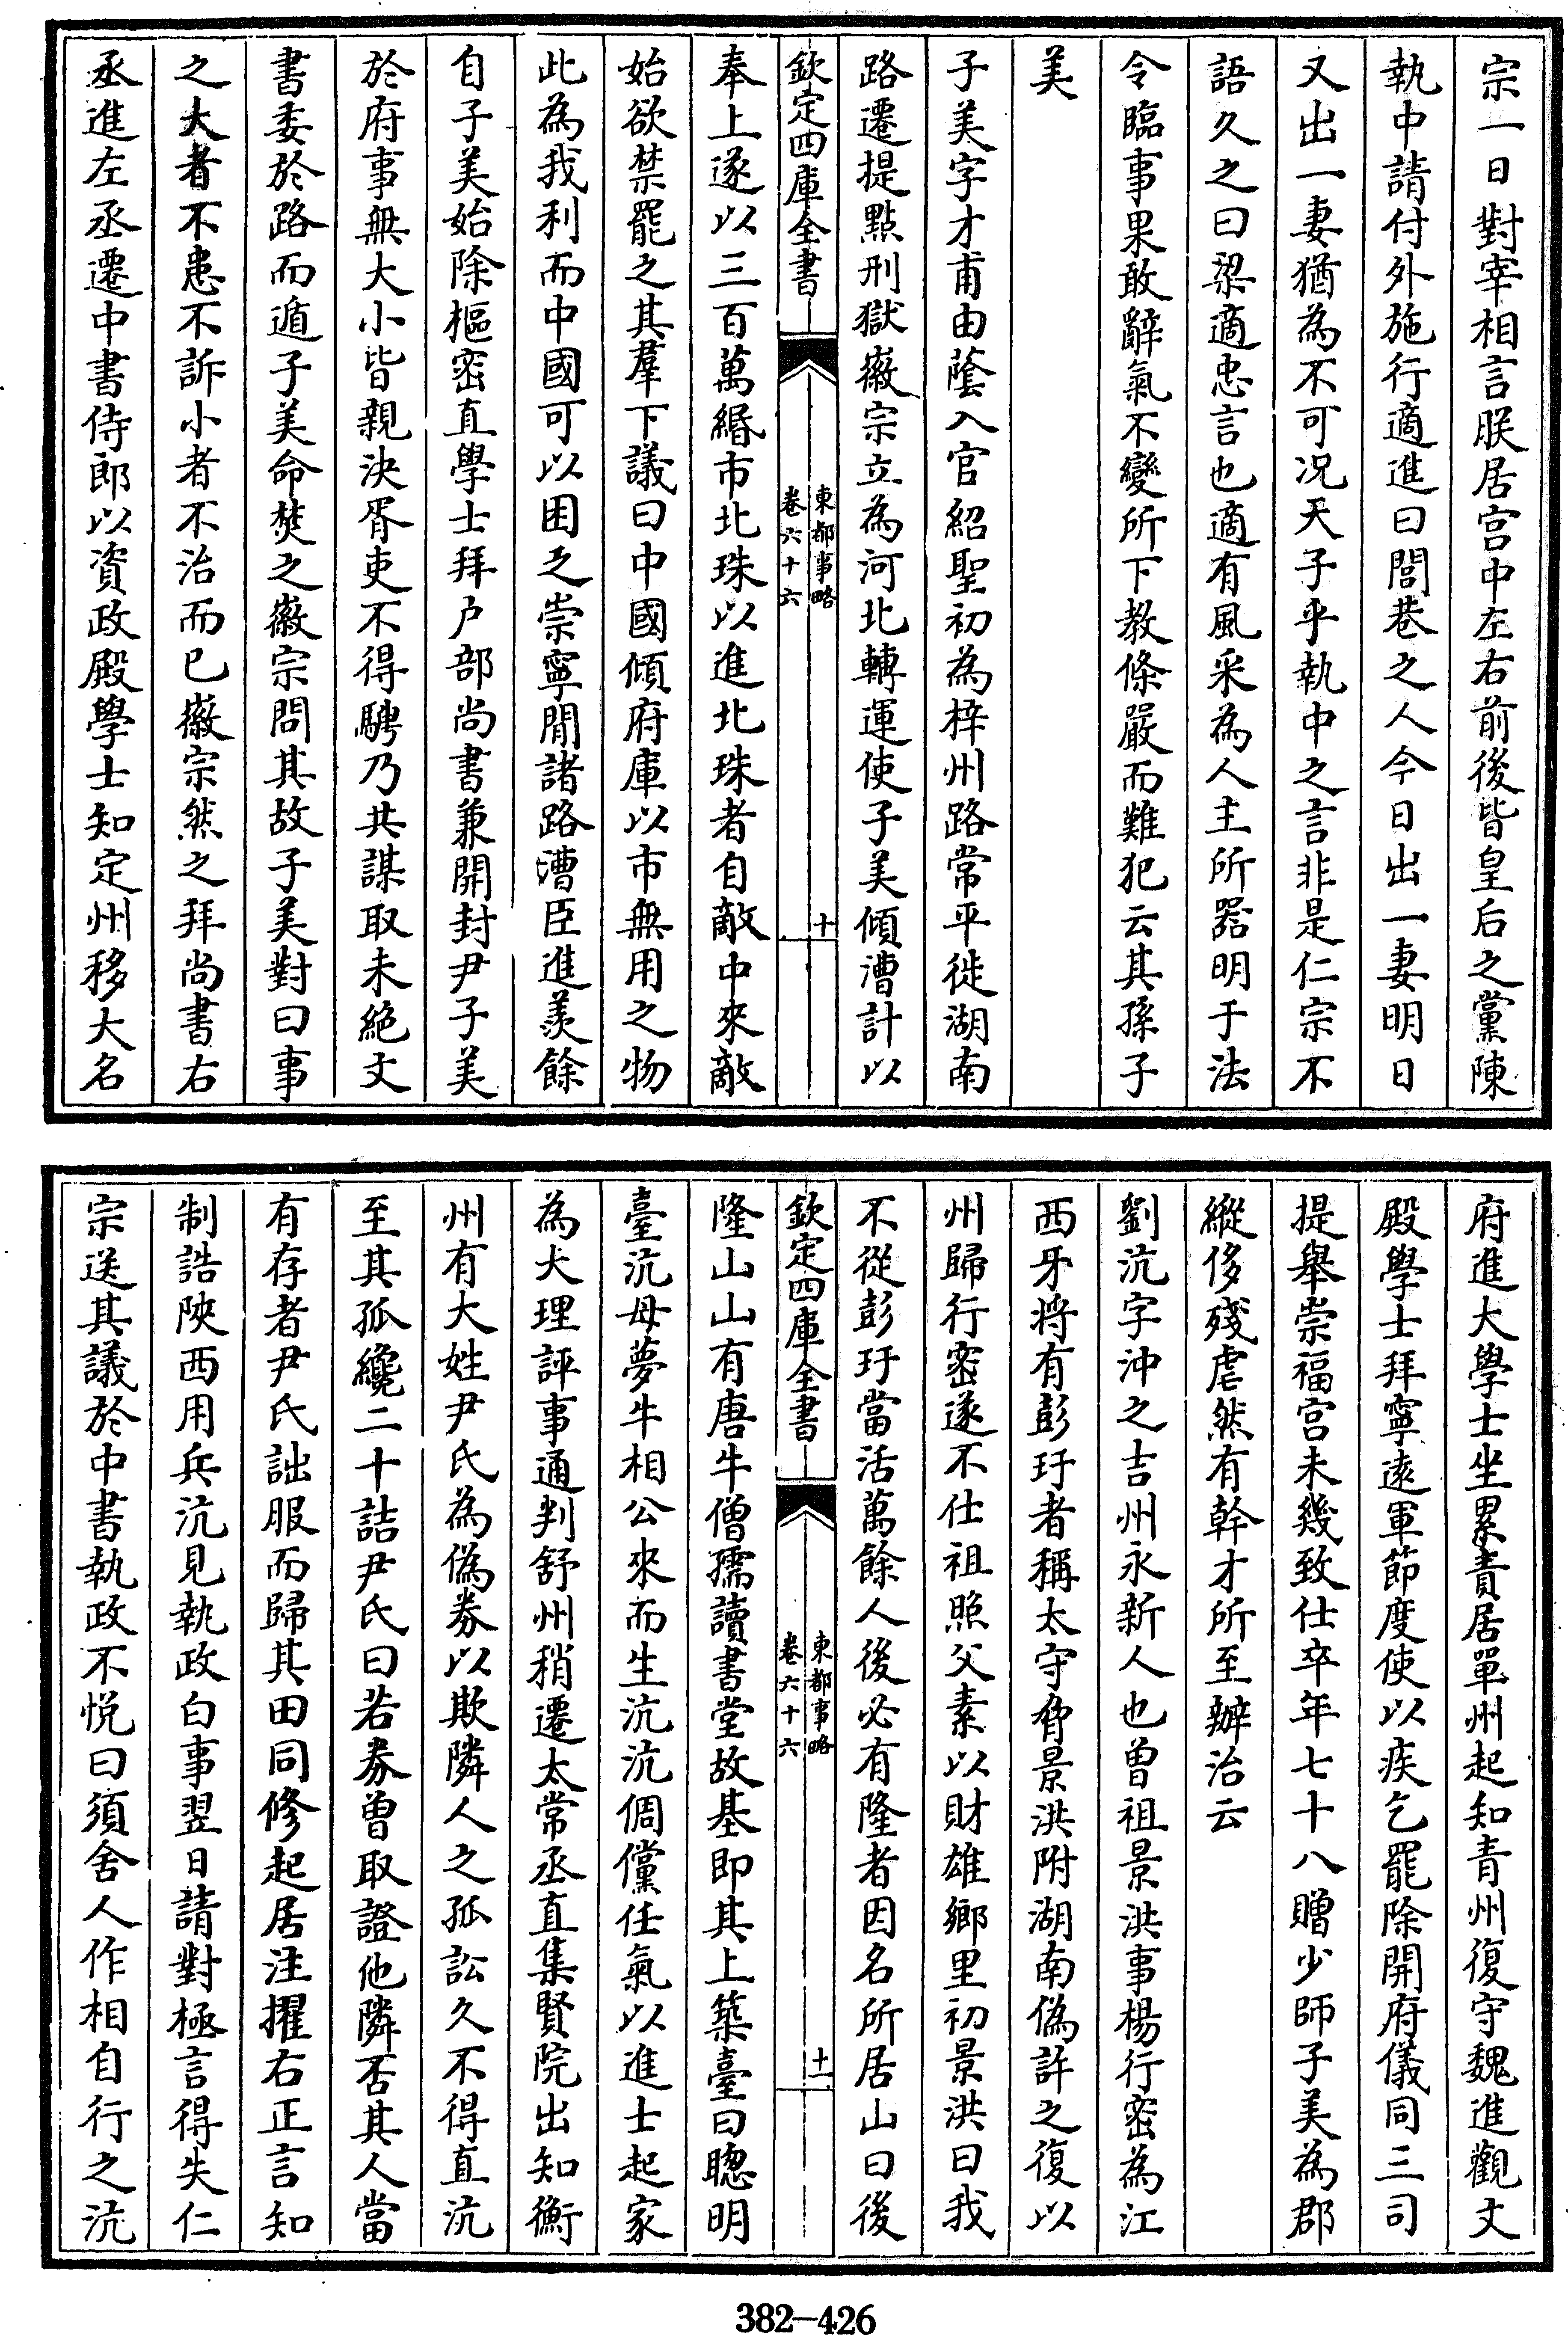 宗一日對宰相言朕居宫中左右前後皆皇后之黨陳
執中請付外施行適進曰閭巷之人今日出一妻明日
又出一妻猶為不可况天子乎執中之言非是仁宗不
語久之曰梁適忠言也適有風采為人主所器明于法
令臨事果敢辭氣不變所下教條嚴而難犯云其孫子
美
子美字才甫由蔭入官紹聖初為梓州路常平徙湖南
路遷提點刑獄徽宗立為河北轉運使子美傾漕計以
欽定四庫全書
東都事略
卷六十六
十
奉上遂以三百萬緡市北珠以進北珠者自敵中來敵
始欲禁罷之其羣下議曰中國傾府庫以市無用之物
此為我利而中國可以困乏崇寧間諸路漕臣進羨餘
自子美始除樞密直學士拜户部尚書兼開封尹子美
於府事無大小皆親決胥吏不得騁乃共謀取未絶文
書委於路而遁子美命焚之徽宗問其故子美對曰事
之大者不患不訴小者不治而已徽宗然之拜尚書右
丞進左丞遷中書侍郎以資政殿學士知定州移大名
府進大學士坐累責居單州起知青州復守魏進觀文
殿學士拜寧遠軍節度使以疾乞罷除開府儀同三司
提舉崇福宫未幾致仕卒年七十八贈少師子美為郡
縱侈殘虐然有幹才所至辦治云
劉沆字沖之吉州永新人也曾祖景洪事楊行密為江
西牙將有彭玕者稱太守脅景洪附湖南偽許之復以
州歸行密遂不仕祖煦父素以財雄鄉里初景洪曰我
不從彭玕當活萬餘人後必有隆者因名所居山曰後
欽定四庫全書
東都事略
卷六十六
十一
隆山山有唐牛僧孺讀書堂故基即其上築臺曰聰明
臺沆母夢牛相公來而生沆沆倜儻任氣以進士起家
為大理評事通判舒州稍遷太常丞直集賢院出知衡
州有大姓尹氏為偽券以欺隣人之孤訟久不得直沆
至其孤纔二十詰尹氏曰若券曾取證他隣否其人當
有存者尹氏詘服而歸其田同修起居注擢右正言知
制誥陝西用兵沆見執政白事翌日請對極言得失仁
宗送其議於中書執政不悅曰須舍人作相自行之沆
382—426